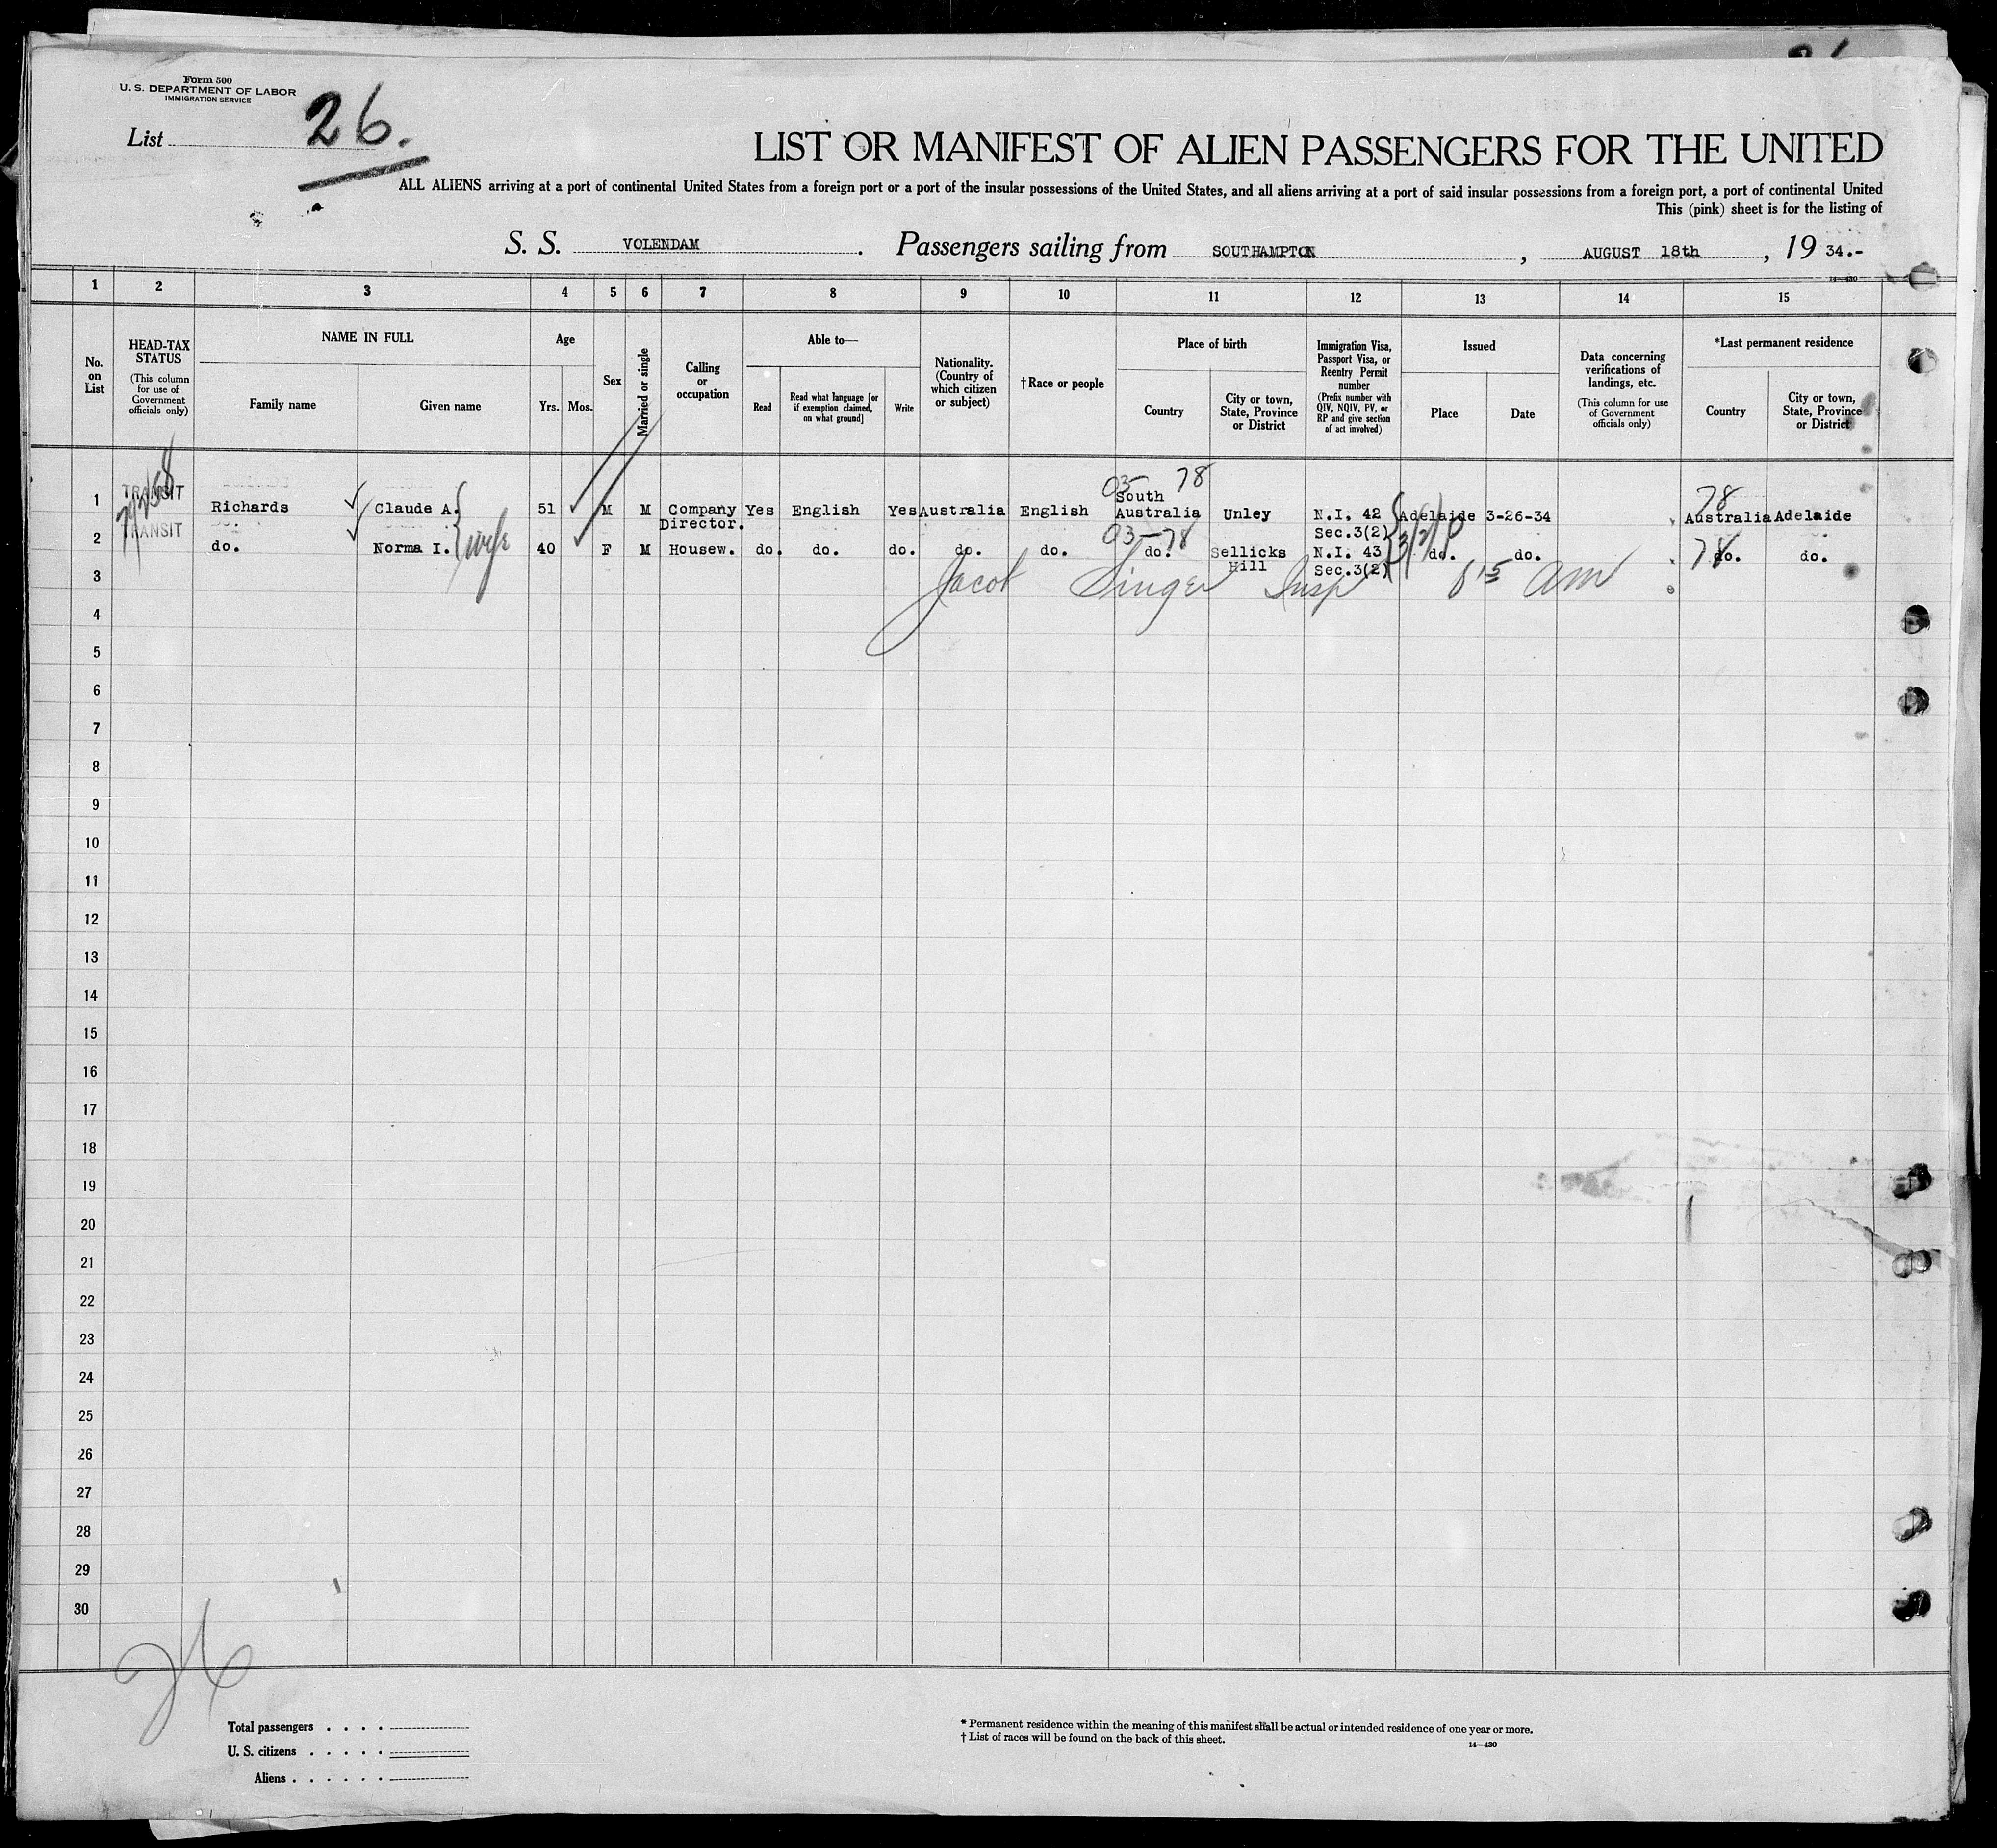 Form 500
U. S. DEPARTMENT OF LABOR
IMMIGRATION SERVICE
List 26.
LIST OR MANIFEST OF ALIEN PASSENGERS FOR THE UNITED
ALL ALIENS arriving at a port of continental United States from a foreign port or a port of the insular possessions of the United States, and all aliens arriving at a port of said insular possessions from a foreign port, a port of continental United
This (pink) sheet is for the listing of
S. S. VOLENDAM. Passengers sailing from SOUTHAMPTON, AUGUST 18th, 19 34.-
14—430
1 2 3 4 5 6 7 8 9 10 11 12 13 14 15
No. on List
HEAD-TAX STATUS
(This column for use of Government officials only)
NAME IN FULL
Family name
Given name
Age
Yrs. Mos.
Sex
Married or single
Calling or occupation
Able to—
Read
Read what language [or if exemption claimed, on what ground]
Write
Nationality. (Country of which citizen or subject)
†Race or people
Place of birth
Country
City or town, State, Province or District
Immigration Visa, Passport Visa, or Reentry Permit number
(Prefix number with QIV, NQIV, PV, or RP and give section of act involved)
Issued
Place
Date
Data concerning verifications of landings, etc.
(This column for use of Government officials only)
*Last permanent residence
Country
City or town, State, Province or District
03 78 78
1 TRANSIT Richards Claude A. 51 M M Company Director. Yes English Yes Australia English South Australia Unley N.I. 42 Sec.3(2) Adelaide 3-26-34 Australia Adelaide
wife
03-78 78
2 TRANSIT do. Norma I. 40 F M Housew. do. do. do. do. do. do. Sellicks Hill N.I. 43 Sec.3(2) do. do. do. do.
3 Jacob Singer Insp 8 15 am
4
5
6
7
8
9
10
11
12
13
14
15
16
17
18
19
20
21
22
23
24
25
26
27
28
29
30
26
Total passengers . . . .
U. S. citizens . . . . .
Aliens . . . . . .
* Permanent residence within the meaning of this manifest shall be actual or intended residence of one year or more.
† List of races will be found on the back of this sheet.
14—430